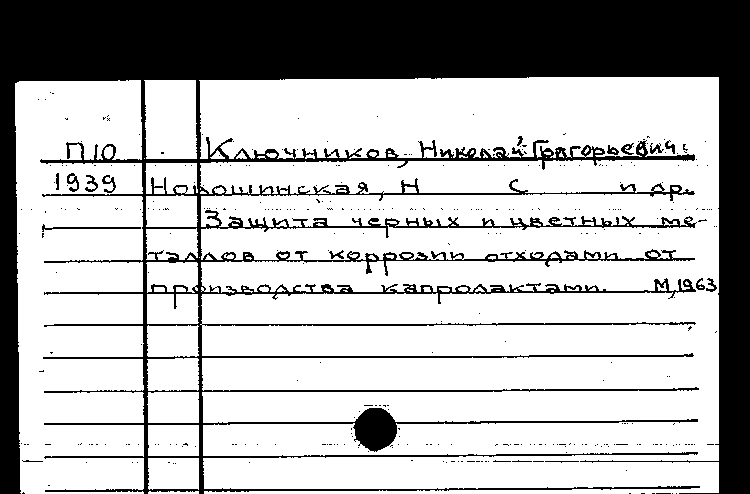 П10 Ключников, Николай Григорьевич:
1939 Новошинская, Н С и др.
Защита черных и цветных ме-
таллов от коррозии отходами от
производства капролактами. М, 1963